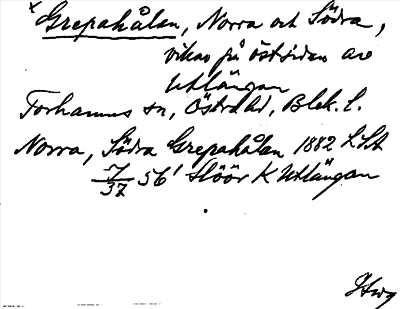 x Grepahålan, Norra och Södra,
vikar på östsidan av
Utlängan
Torhamns sn, Östra hd, Blek. l.
Norra, Södra Grepahålan 1882 LSA
7/37 56' Höör K Utlängan